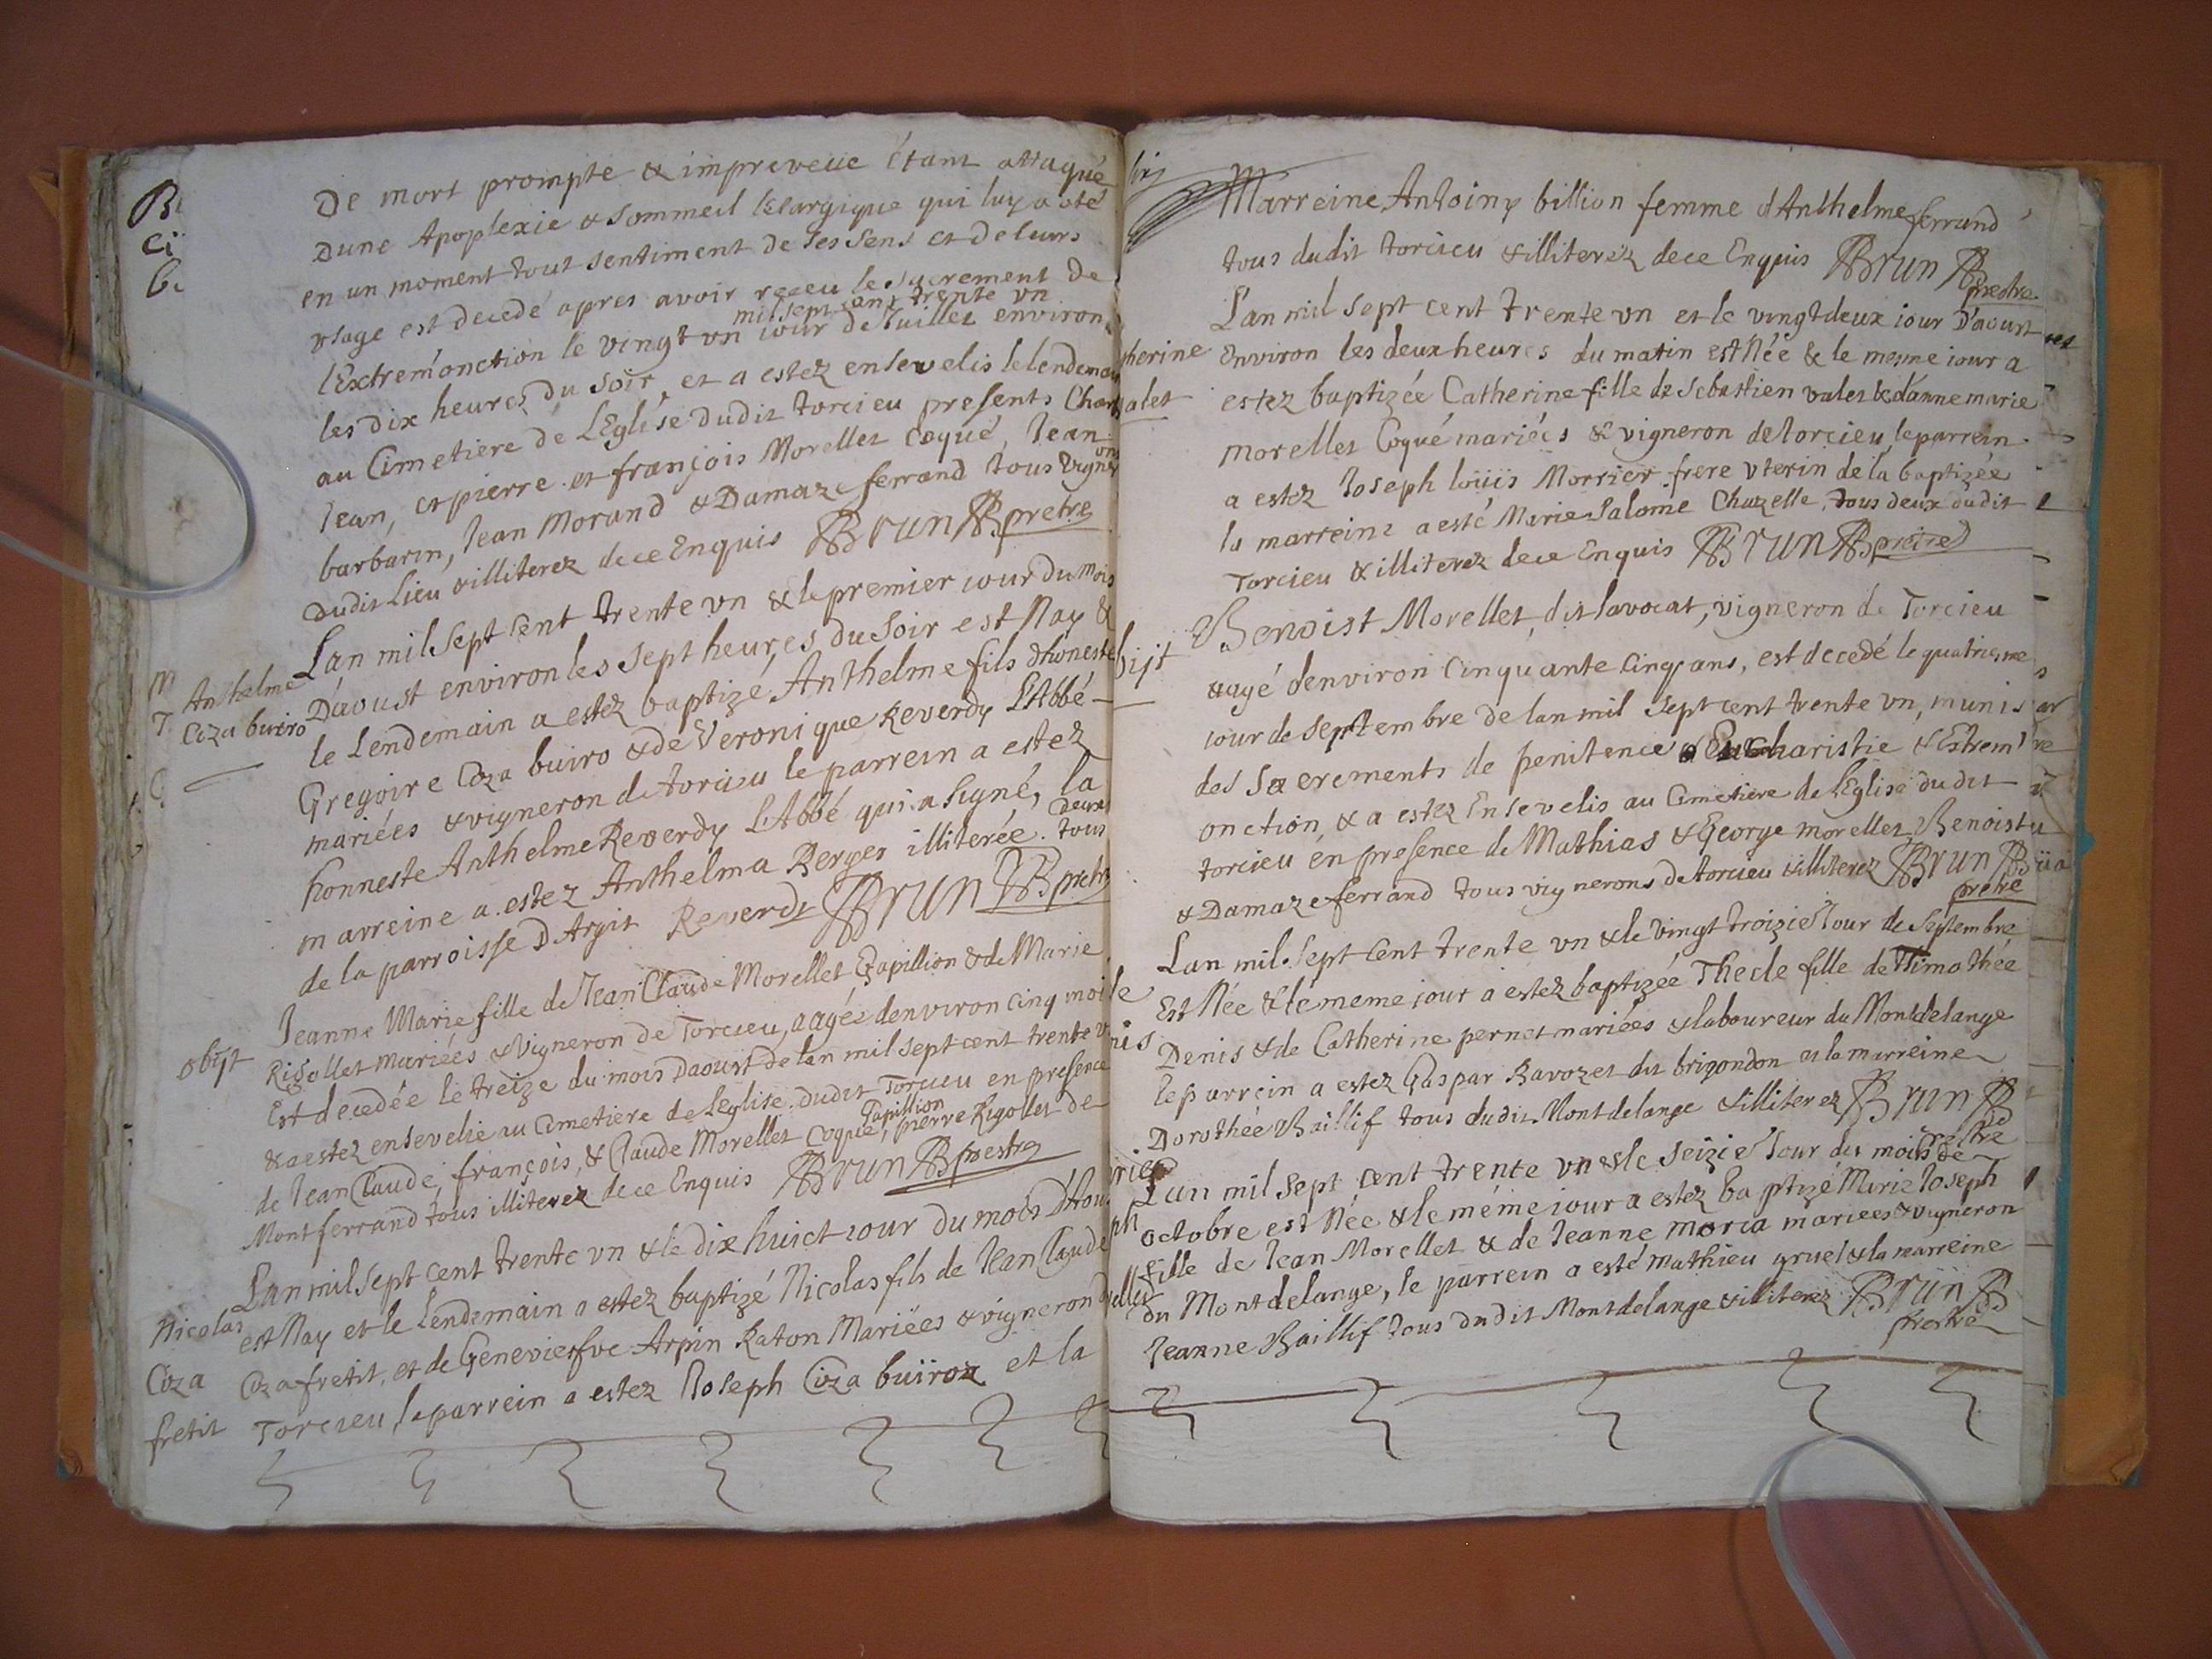 De mort prompte & impreveue étant attaqué
Dune Apoplexie & sommeil letargique qui luy a oté
en un moment tout sentiment de ses sens et de leurs
usage est decedé apres avoir receu le sacrement de
mil sept cent trente vn
l'Extrem'onction le vingt vn iour de Juillet environ
les dix heures du soir, et a estez ensevelis le lendemain
au Cimetiere de L'Eglise dudit torcieu presents Char
Jean, et pierre et françois Morellet Coqué, Jean
barbarin, Jean Morand & Damaze ferrand tous vignerons
dudit Lieu & illiterez de ce Enquis Brun pretre
Anthelme
Coza buiro
Lan mil Sept Cent trente vn & le premier iour du mois
Daoust environ les sept heures du soir est Nay &
le Lendemain a estez baptizé Anthelme fils dhoneste
Gregoire Coza buiro & de Veronique Reverdy L'Abbé
mariées & vigneron de torcieu le parrein a estez
honneste Anthelme Reverdy L'Abbé qui a signé, la
marreine a estez Anthelma Berger illiterée tous deux
de la parroisse D Argit Reverdy Brun pretre
obijt
Jeanne Marie fille de Jean Claude Morellet Papillion & de Marie
Rigollet mariées & vigneron de Torcieu, aagée denviron cinq mois
Est decedée le treize du mois Daoust de lan mil sept cent trente v
& a estez ensevelie au Cimetiere de Leglise dudit Torcieu en presence
de Jean Claude, françois, & Claude Morellet Coqué, Papillion pierre Rigollet de
Montferrand tous illiterez de ce Enquis Brun prestre
Nicolas
Coza
fretit
Lan mil sept cent trente vn & le dix huict iour du mois D'Aou
est Nay et le Lendemain a estez baptizé Nicolas fils de Jean Claude
Coza fretit, et de Genevierfve Arpin Raton Mariées & vigneron d
Torcieu, le parrein a estez Joseph Coza buiroz et la
Marreine Antoiny billion femme d'Anthelme ferrand
tous dudit torcieu & illiterez de ce Enquis Brun prestre
herine
alet
L'an mil sept cent trente vn et le vingt deux iour D'aoust
Environ les deux heures du matin est Née & le mesme iour a
estez baptizée Catherine fille de Sebastien valet & danne marie
morellet Coqué mariées & vigneron de torcieu, le parrein
a estez Joseph loüis Morrier frere vterin de la baptizée
la marreine a esté Marie Salome Chazelle, tous deux dudit
Torcieu & illiterez de ce Enquis Brun pretre
bijt
Benoist Morellet, dit lavocat, vigneron de Torcieu
& agé denviron Cinquante Cinq ans, est decedé le quatriesme
iour de septembre de lan mil sept cent trente vn, munis
des Sacrements de penitence & Eucharistie & Extrem'
onction, & a estez Ensevelis au Cimetiere de L'Eglise du dit
torcieu en presence de Mathias & George morellet, Benoist
& Damaze ferrand tous vignerons de torcieu & illiterez Brun pretre
Lan mil Sept Cent trente vn & le vingt troizie' Jour de Septembre
Est Née & le meme iour a estez baptizée Thecle fille de Timothée
Denis & de Catherine pernet mariées & laboureur du Montdelange
le parrein a estez Gaspar Ravozet dit brigondon et la marreine
Dorothée Baillif tous dudit Montdelange & illiterez Brun prestre
Lan mil sept cent trente vn & le seizie' Jour du mois de
octobre est Née & le méme iour a estez baptizé Marie Joseph
fille de Jean Morellet & de Jeanne moria mariees & vigneron
du Montdelange, le parrein a esté Mathieu gruel & la marreine
Jeanne Baillif tous dudit Montdelange & illiterez Brun prestre